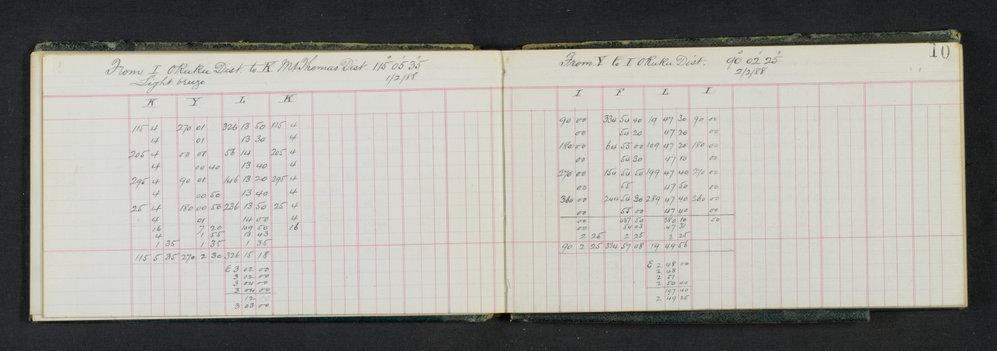 From I Okuku Dist. to K Mt Thomas Dist 115° 05 35
Light breeze 1/2/88
K Y L K
115 4 270 01 326 13 50 115 4
4 01 13 30 4
205 4 00 01 56 14 205 4
4 00 40 13 40 4
295 4 90 01 146 13 20 295 4
4 00 50 13 40 4
25 4 180 00 50 236 13 50 25 4
4 01 14 00 4
16 7 20 49 50 16
4 1 55 13 43
1 35 1 35 1 35
115 5 35 270 2 30 326 15 18
E 3 02 00
3 02 00
3 04 00
3 04 00
12
3 03 00
10
From Y to I Okuku Dist. 90° 02 25
2/2/88
I F L I
90 00 334 54 40 19 47 30 90 00
00 54 20 47 20 00
180 00 64 55 00 109 47 20 180 00
00 54 30 47 10 00
270 00 154 54 50 199 47 40 270 00
00 55 47 50 00
360 00 244 54 30 289 47 40 360 00
00 55 00 47 40 00
00 380 10 00
00 54 03 47 31
2 25 2 25 2 25
90 2 25 334 57 08 19 49 56
E 2 48 00
2 48
2 51
2 50 00
197 40
2 49 25